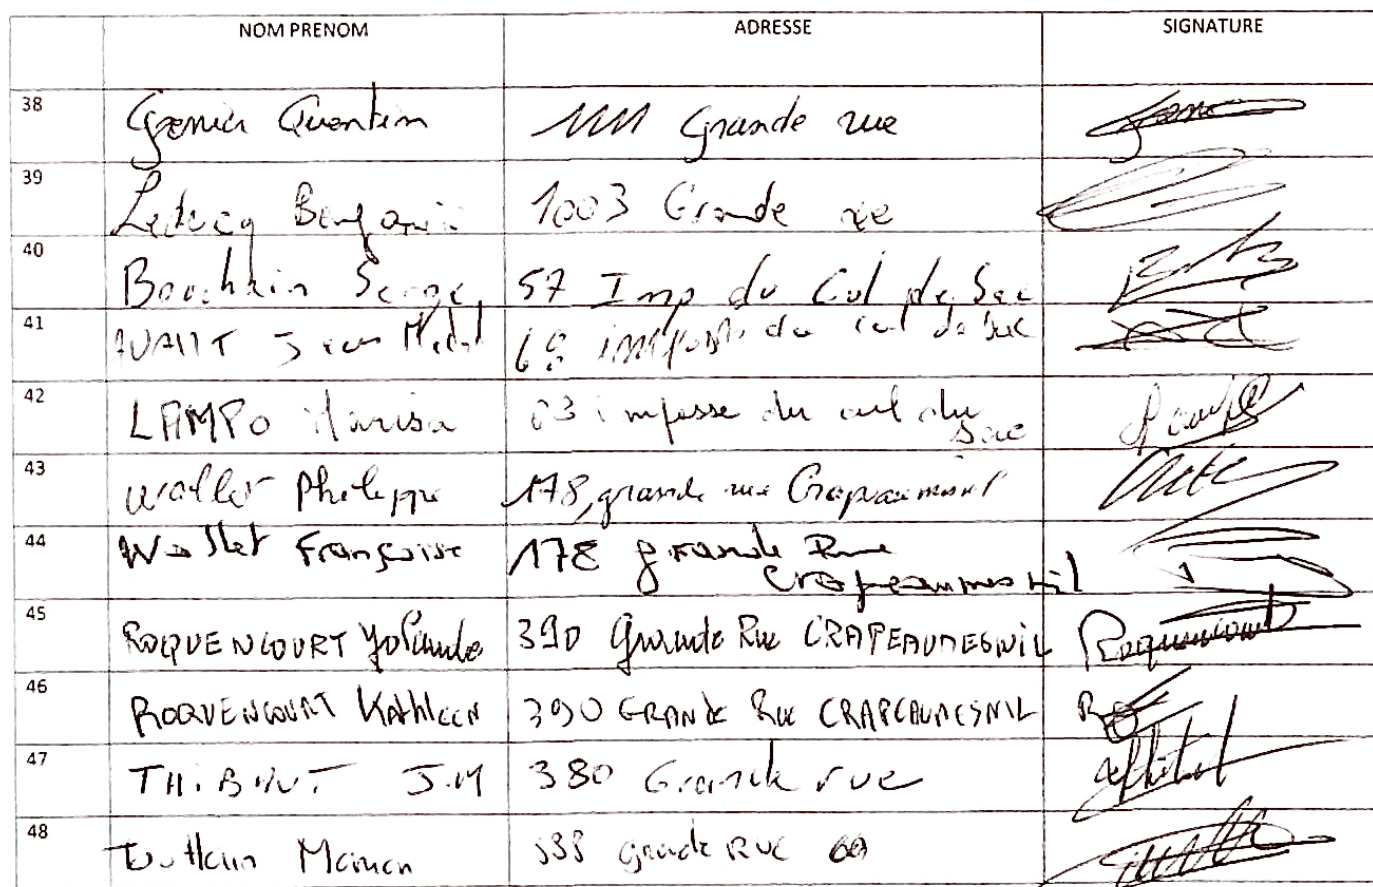 NOM PRENOM ADRESSE SIGNATURE
38 Grenier Quentin 1111 Grande rue
39 Leducq Benjamin 1003 Grande rue
40 Bouchain Serge 57 Imp du Cul de Sac
41 Jean Michel impasse du cul de sac
42 LAMPO Marisa 63 impasse du cul du sac
43 Wallet Philippe 178, grande rue Crapeaumesnil
44 Wallet Françoise 178 grande Rue
Crapeaumesnil
45 ROQUENCOURT Yolande 390 Grande Rue CRAPEAUMESNIL Roquencourt
46 ROQUENCOURT Kathleen 390 GRANDE Rue CRAPEAUMESNIL
47 THIBAUT J.M 380 Grande rue
48 Manon grande RUE